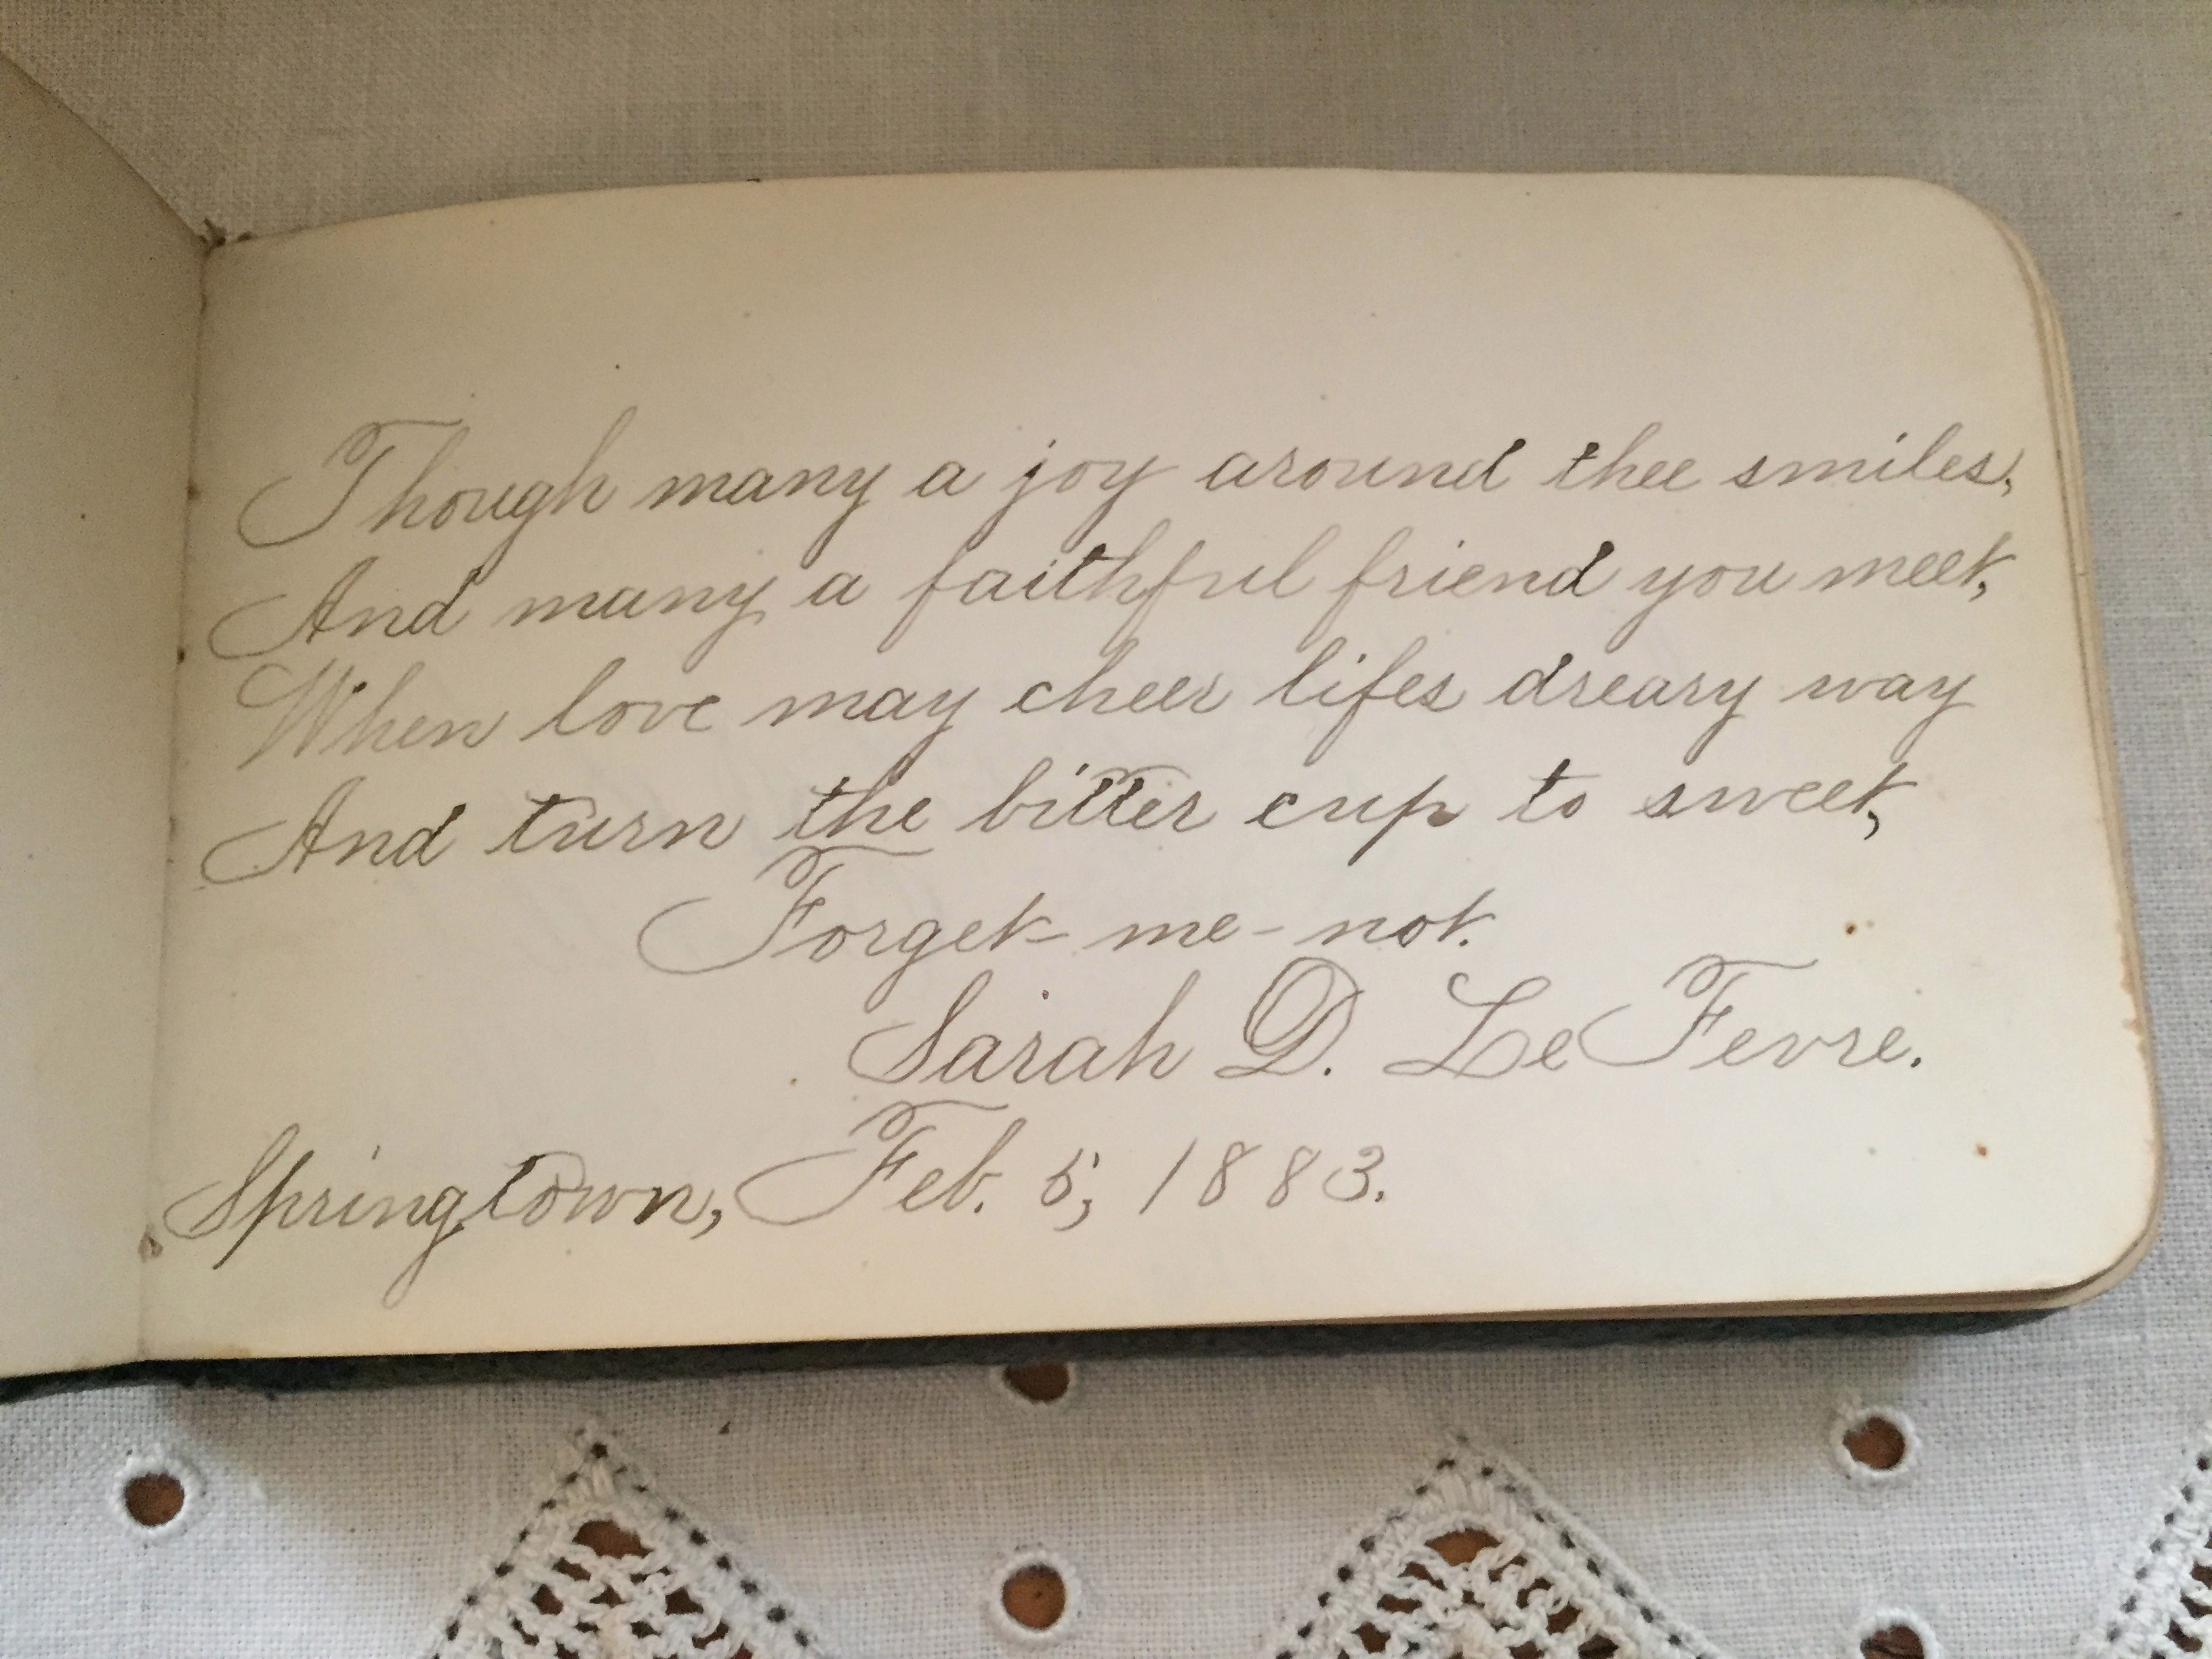 Though many a joy around thee smiles,
And many a faithful friend you meet,
When love may cheer lifes dreary way
And turn the bitter cup to sweet,
Forget-me-not.
Sarah D. LeFevre.
Springtown, Feb. 5, 1883.